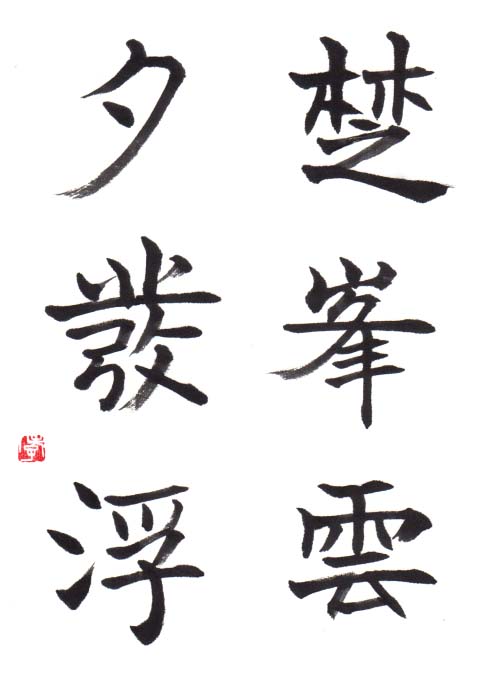 楚峯雲
夕發浮